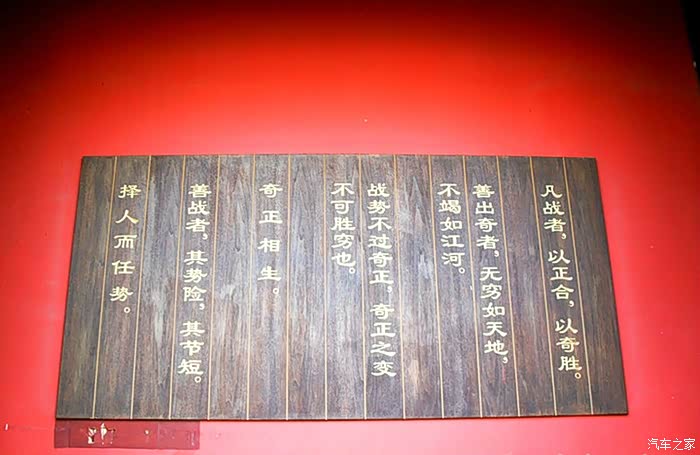 凡战者，以正合，以奇胜。
善出奇者，无穷如天地，
不竭如江河。
战势不过奇正，奇正之变
不可胜穷也。
奇正相生。
善战者，其势险，其节短。
择人而任势。
汽车之家